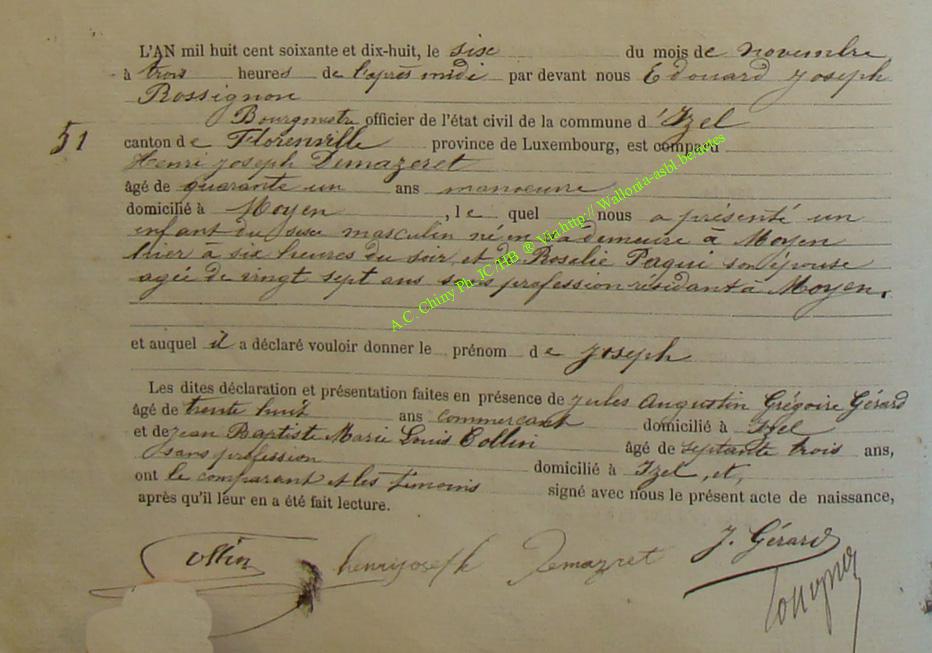 L'AN mil huit cent soixante et dix-huit, le six du mois de novembre
à trois heures de l'après midi par devant nous Edouard Joseph
Rossignon
Bourgmestre officier de l'état civil de la commune d'Izel
51
canton de Florenville province de Luxembourg, est comparu
Henri Joseph Demazeret
âgé de quarante un ans manoeuvre
domicilié à Moyen, le quel nous a présenté un
enfant du sexe masculin né en sa demeure à Moyen
hier à six heures du soir et de Rosalie Paqui son épouse
agée de vingt sept ans sans profession résidant à Moyen.
et auquel il a déclaré vouloir donner le prénom de Joseph
Les dites déclaration et présentation faites en présence de Jules Augustin Grégoire Gérard
âgé de trente huit ans commercant domicilié à Izel
et de Jean Baptiste Marie Louis Collin âgé de septante trois ans,
sans profession domicilié à Izel, et,
ont le comparant et les témoins signé avec nous le présent acte de naissance,
après qu'il leur en a été fait lecture.
Collin henri joseph Demazret J. Gérard
A.C. Chiny Ph. JC/HB ® Via http:// Wallonia-asbl.be/actes